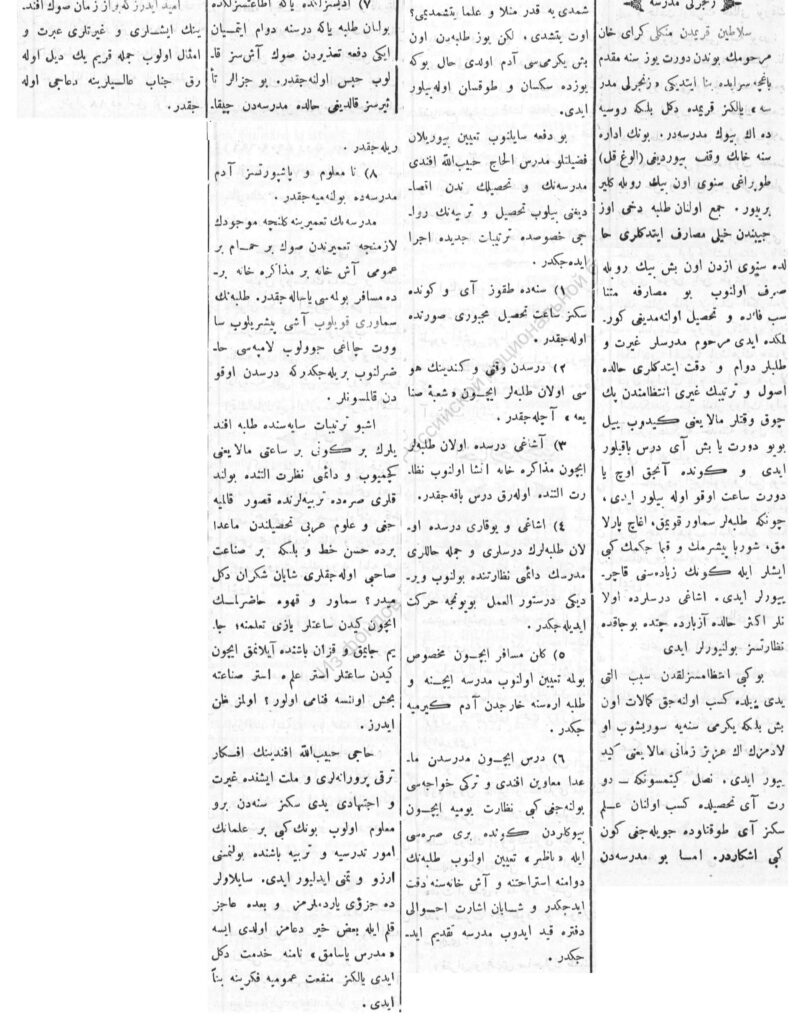 زنجرلی مدرسه
سلاطین قریمدن منكلی كرای خان
مرحومك بوندن دورت یوز سنه مقدم
باغچه سرایده بنا ایتدیكی «زنجرلی مدر
سه» یالكز قریمده دكل بلكه روسیه
ده اك بیوك مدرسه‌در. بونك اداره
سنه خانك وقف بیوردیغی (الوغ قل)
طوپراغی سنوی اون بیك روبله كلیر
بریور. جمع اولنان طلبه دخی اوز
جیبندن خیلی مصارف ایتدكلری حا
لده سنوی ازدن اون بش بیك روبله
صرف اولنوب بو مصارفه مثنا
سب فائده و تحصیل اولنه‌مدیغی كور-
لمكده ایدی مرحوم مدرسلر غیرت و
طلبلر دوام و دقت ایتدكلری حالده
اصول و ترتیبك غیری انتظامندن پك
چوق وقتلر مالا یعنی كیدوب ییل
بویو دورت یا بش آی درس باقیلور
ایدی و كونده آنجق اوچ یا
دورت ساعت اوقو اوله بیلور ایدی.
چونكه طلبه‌لر سماور قویمق، اغاچ پارلا
مق، شوربا پیشرمك و قیما چكمك كبی
ایشلر ایله كونك زیاده‌سنی قاچر-
ییورلر ایدی. اشاغی درسلرده اولا
نلر اكثر حالده آزبارده چنده بوجاقده
نظارتسز بولنیورلر ایدی
بو كبی انتظامسزلقدن سبب التی
یدی ییلده كسب اولنه‌جق كمالات اون
بش بلكه یكرمی سنه‌یه سوریشوب او
لادمزك اك عزیز زمانی مالا یعنی كید
ییور ایدی. نصل كیتمسونكه — دو
رت آی تحصیلده كسب اولنان علم
سكز آی طوقتاوده جویله‌جغی كون
كبی اشكاردر. امسا بو مدرسه‌دن
شمدی یه قدر منلا و علما یتشمدیمی؟
اوت یتشدی. لكن یوز طلبه‌دن اون
بش یكرمی‌سی آدم اولدی حال بوكه
یوزده سكسان و طوقسان اوله‌بیلور
ایدی.
بو دفعه سایلنوب تعیین بیوریلان
فضیلتلو مدرس الحاج حبیب‌الله افندی
مدرسه‌نك و تحصیلك ندن اقصا-
دیغنی بیلوب تحصیل و تربیه‌نك روا-
جی خصوصده ترتیبات جدیده اجرا
ایده‌جكدر.
۱) سنه‌ده طقوز آی و كونده
سكز ساعت تحصیل مجبوری صورتده
اوله‌جقدر.
۲) درسدن وقتی و كندینك هو
سی اولان طلبه‌لر ایچون «شعبهٔ صنا
یعه» آچله‌جقدر.
۳) آشاغی درسده اولان طلبه‌لر
ایچون مذاكره خانه انشا اولنوب نظا-
رت التنده اوله‌رق درس باقه‌جقدر.
۴) اشاغی و یوقاری درسده او-
لان طلبه‌لرك درسلری و جمله حاللری
مدرسك دائمی نظارتنده بولنوب ویر-
دیكی درستور العمل بوبونجه حركت
ایدیله‌جكدر.
۵) كلن مسافر ایچون مخصوص
بولمه تعیین اولنوب مدرسه ایچنه و
طلبه ارەسنه خارجدن آدم كیرمیه
جكدر.
۶) درس ایچون مدرسدن ما-
عدا معاوین افندی و تركی خواجه‌سی
بولنه‌جغی كبی نظارت یومیه ایچون
بیوكلردن كونده بری صره‌سی
ایله «ناظر» تعیین اولنوب طلبه‌نك
دوامنه استراحتنه و آش خانه‌سنه دقت
ایدجكدر و شایان اشارت احوالی
دفتره قید ایدوب مدرسه تقدیم اید-
جكدر.
۷) ادبسزلكده یاكه اطاعتسزلكده
بولنان طلبه یاكه درسنه دوام ایتمیان
ایكی دفعه تعذیردن صوك آش‌سز قا
لوب حبس اولنه‌جقدر. بو جزالر تأ
ثیرسز قالدیغی حالده مدرسه‌دن چیقا-
ریله‌جقدر.
۸) نا معلوم و پاشپورتسز آدم
مدرسه‌ده بولنه‌میه‌جقدر.
مدرسه‌نك تعمیرینه كلنجه موجودك
لازمنجه تعمیرندن صوك بر حمام بر
عمومی آش خانه بر مذاكره خانه بر-
ده مسافر بولمه‌سی یاساله‌جقدر. طلبه‌نك
سماوری قویلوب آشی پیشریلوب سا
ووت چاغی جوولوب لامپه‌سی حا-
ضرلنوب بریله‌جكدركه درسدن اوقو
دن قالمسونلر.
اشبو ترتیبات سایه‌سنده طلبه افند
یلرك بر كونی بر ساعتی مالا یعنی
كیمیوب و دائمی نظرت التنده بولند
قلری صره‌ده تربیه‌لرنده قصور قالمیه
جغی و علوم عربی تحصیلندن ماعدا
برده حسن خط و بلكه بر صناعت
صاحبی اوله‌جقلری شایان شكران دكل
میدر؟ سماور و قهوه حاضرلمسك
ایچون كیدن ساعتلر یازی تعلمنه؛ جا-
یم جایمق و قزان باشنده آیلانمق ایچون
كیدن ساعتلر استر علمه استر صناعته
بخش اولنسه فنامی اولور؟ اولمز ظن
ایدرز.
حاجی حبیب‌الله افندینك افسكار
ترقی پرورانه‌لری و ملت ایشنده غیرت
و اجتهادی یدی سكز سنه‌دن برو
معلوم اولوب بونك كبی بر علمانك
امور تدرسیه و تربیه باشنده بولنمنی
ارزو و تمنی ایدلیور ایدی. سایلاولر
ده جزؤی یاردملرمز و بعده عاجز
قلم ایله بعض خیر دعامز اولدی ایسه
«مدرس یاسامق» نامنه خدمت دكل
ایدی یالكز منفعت عمومیه فكرینه بناً
ایدی.
امید ایدرز كه از زمان صوك افند
ینك ایشلری و غیرتلری عبرت و
امثال اولوب جمله قریم یك دیل اوله
رق جناب عالیلرینه دعاجی اوله
جقدر.